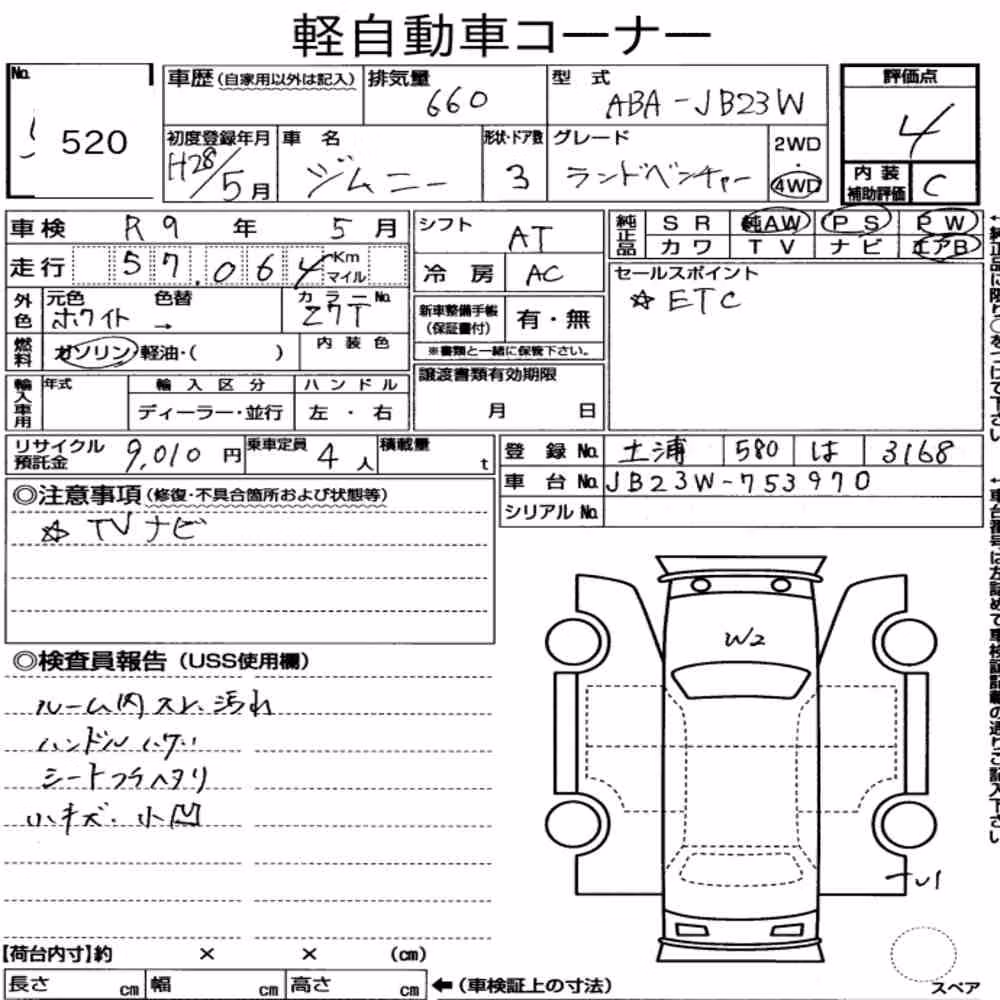 軽自動車コーナー
No. 520
車歴(自家用以外は記入) 排気量 660 型式 ABA-JB23W 評価点 4
初度登録年月 H28/5月 車名 ジムニー 形状・ドア数 3 グレード ランドベンチャー 2WD・4WD 内装補助評価 C
車検 R9年 5月 シフト AT 純正品 SR 純AW PS PW
カワ TV ナビ エアB
走行 57,064 Km マイル 冷房 AC セールスポイント
☆ ETC
外色 元色 ホワイト → 色替 カラーNo. Z7T 新車整備手帳(保証書付) 有・無
※書類と一緒に保管下さい。
燃料 ガソリン・軽油・( ) 内装色
輸入車用 年式 輸入区分 ハンドル 譲渡書類有効期限
ディーラー・並行 左・右 月 日
リサイクル預託金 9,010円 乗車定員 4人 積載量 t 登録No. 土浦 580 は 3168
車台No. JB23W-753970
シリアルNo.
◎注意事項(修復・不具合箇所および状態等)
☆ TVナビ
◎検査員報告(USS使用欄)
W2
ルーム内スレ、汚れ
ハンドルハゲ
シートフチヘタリ
小キズ・小凹
U1
【荷台内寸】約 × × (cm)
長さ cm 幅 cm 高さ cm ←(車検証上の寸法)
スペア
←純正品に限り○をつけて下さい
←車台番号は左詰めで車検証記載の通りご記入下さい